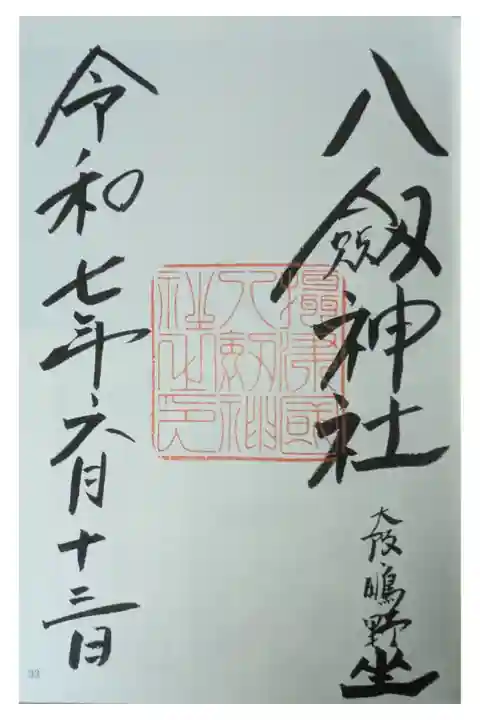 八劔神社
大阪鴫野坐
攝津國
八剱神
社之印
令和七年六月十三日
33